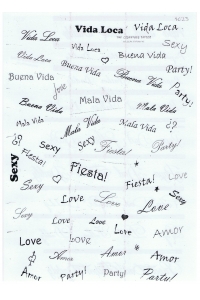 4025
Vida Loca Vida Loca
Vida Loca
Vida Loca Sexy
Vida Loca Buena Vida
Buena Vida Party!
Buena Vida Buena Vida
love Party!
Buena Vida Mala Vida Mala Vida
Mala Vida Mala Vida Mala Vida ¿?
¿? Sexy Sexy Fiesta! Party!
Fiesta!
Sexy Fiesta! Fiesta! Love
Sexy Sexy
Love Love Love
Sexy Love Love Love
Love Love Love Amor
Amor Amor Amor
Amor Party! Party! Party!